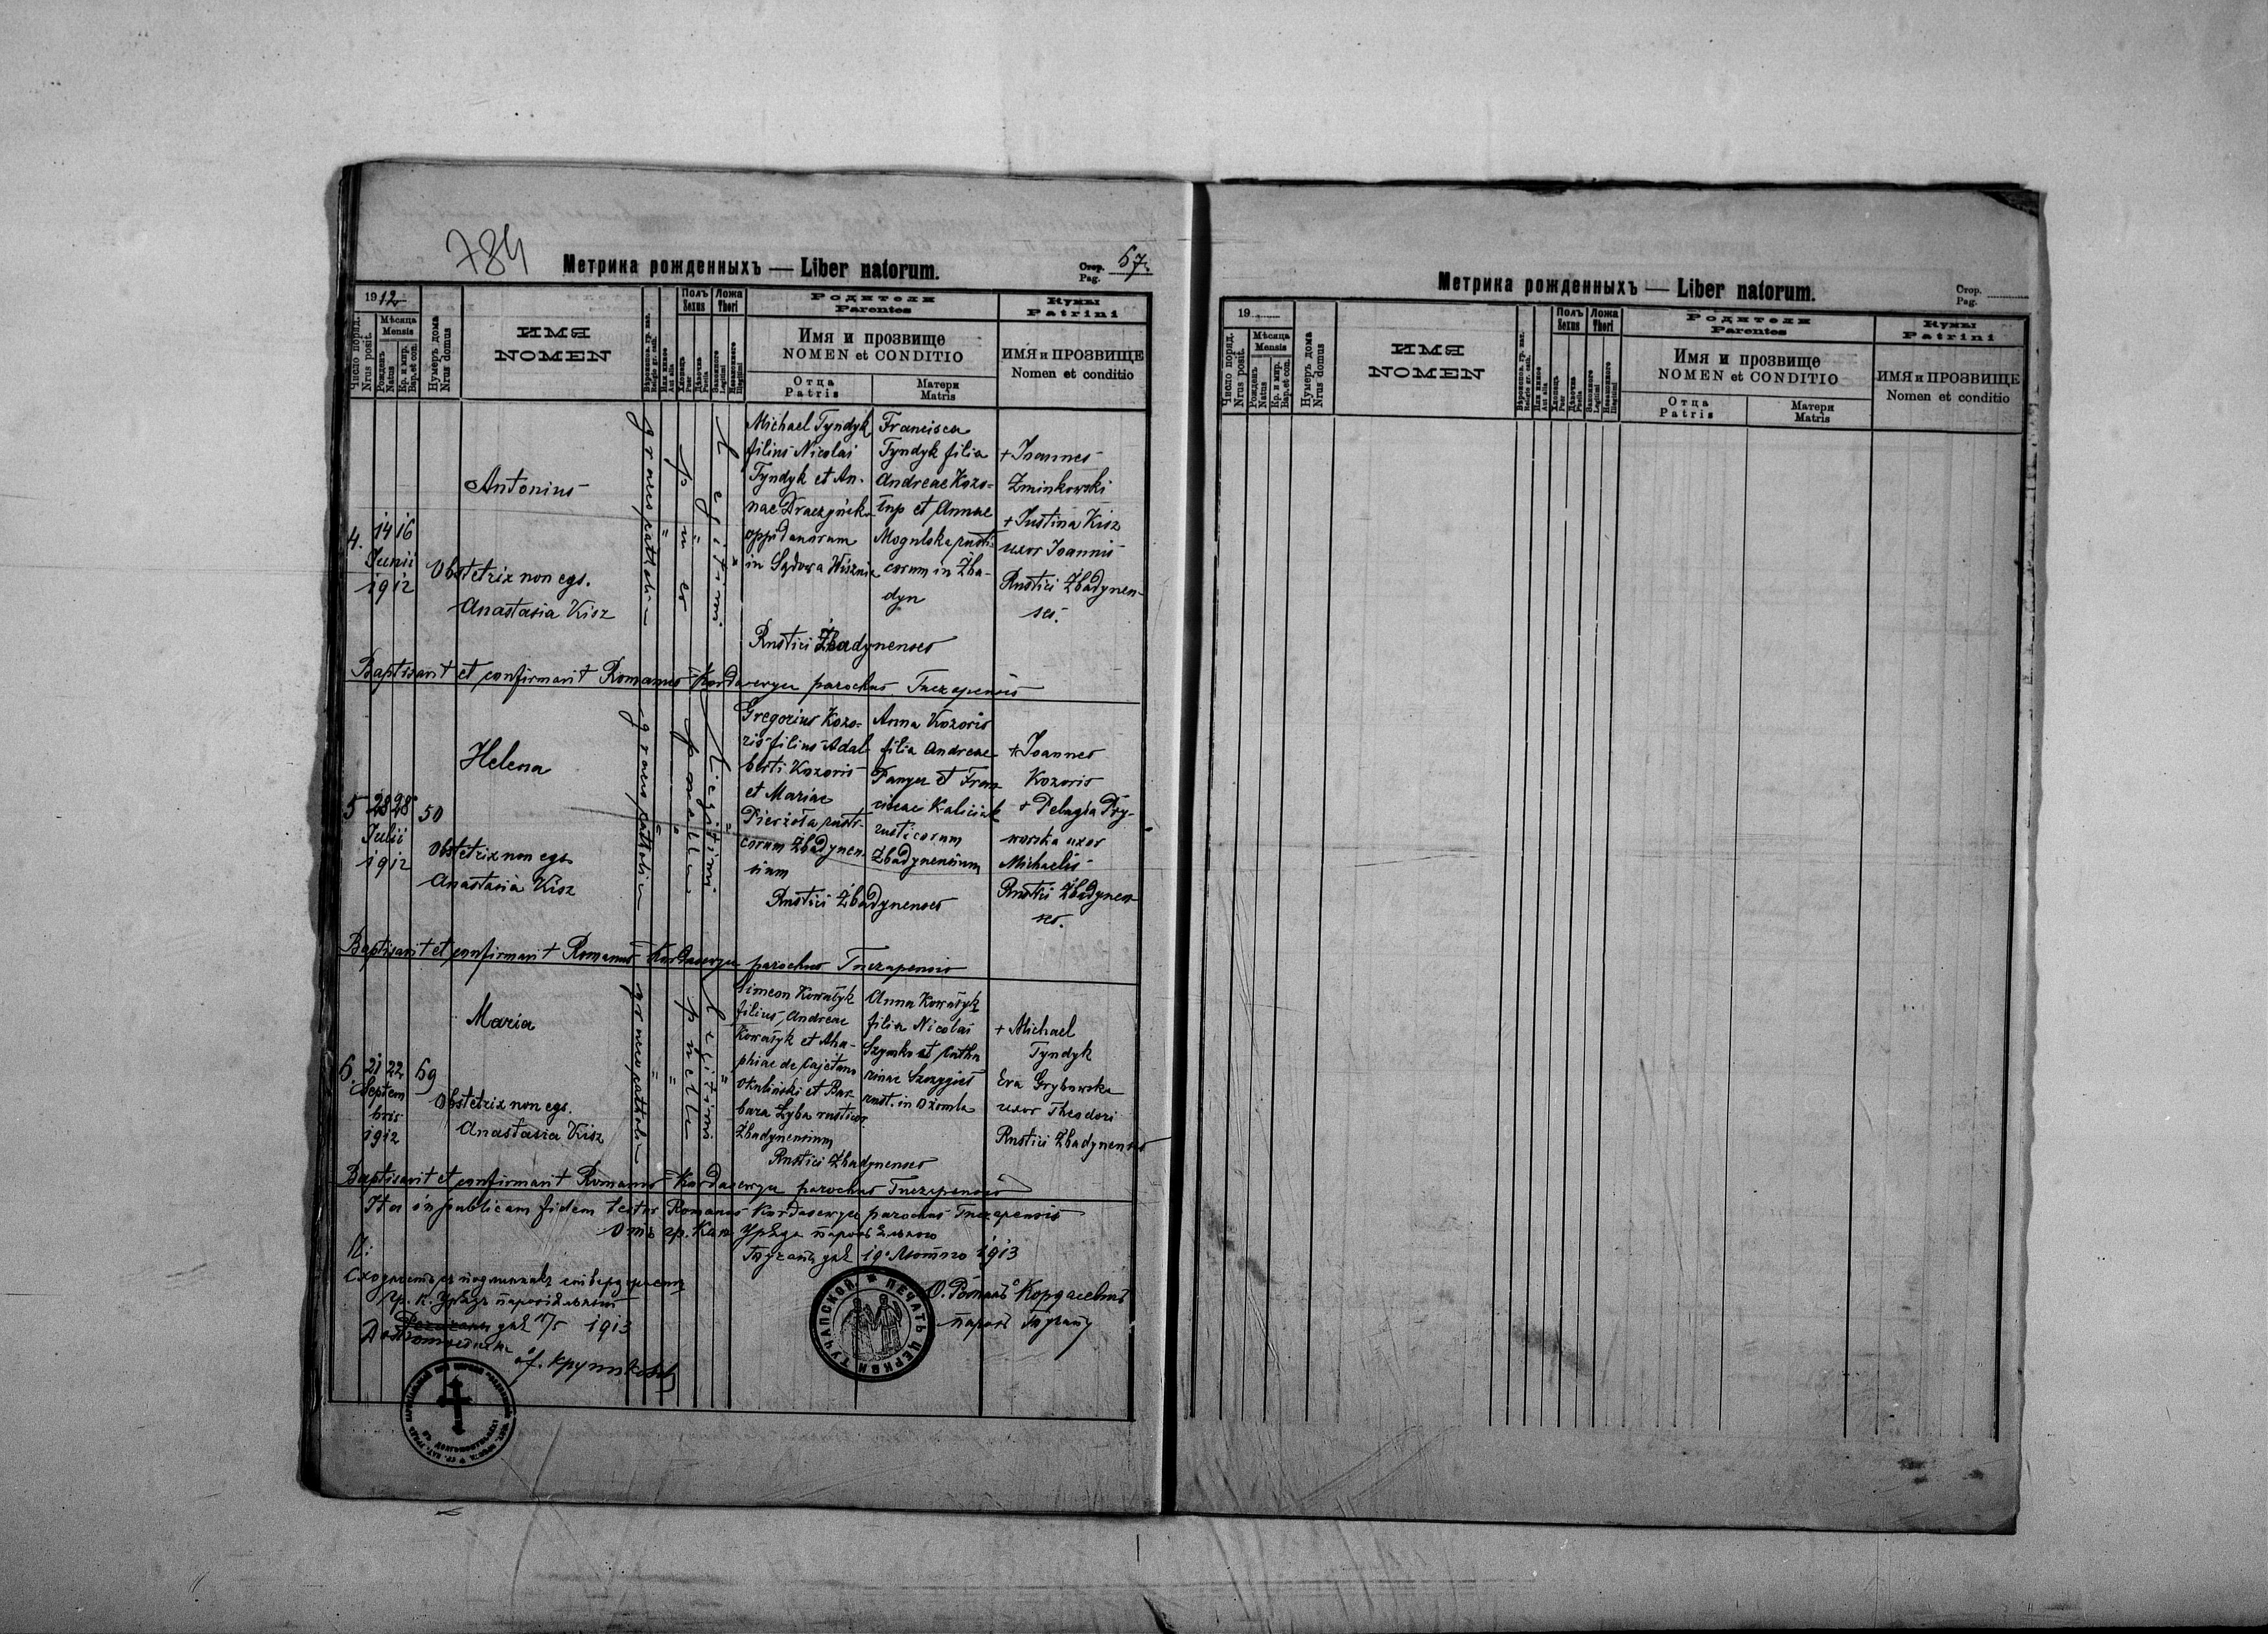 784
Метрика рожденныхъ — Liber natorum.
Стор. Pag. 67.
1912
Число поряд. Nrus posit.
Мѣсяца Mensis
Рожденъ Natus
Кр. и мир. Bap. et con.
Нумеръ дома Nrus domus
ИМЯ
NOMEN
Вѣроиспов. гр. кат. Religio gr. cath.
Или инное Aut alia
Полъ Sexus
Хлопецъ Puer
Дѣвочка Puella
Ложа Thori
Законного Legitimi
Незаконного Illegitimi
Родители
Parentes
Имя и прозвище
NOMEN et CONDITIO
Отца
Patris
Матери
Matris
Кумы
Patrini
ИМЯ и ПРОЗВИЩЕ
Nomen et conditio
4.
14 16
Junii
1912
Antonius
Obstetrix non egs.
Anastasia Kisz
graeco catholi-
puer
Legitimi
Michael Tyndyk
filius Nicolai
Tyndyk et An-
nae
oppidanorum
in Sądowa Wisznia
Francisca
Tyndyk filia
Andreae Kozo-
et Annae
Mogulska rusti-
corum in Żba-
dyn
Rustici Żbadynenses
+ Joannes
Zminkowski
+ Justina Kisz
uxor Joannis
Rustici Żbadynen-
ses.
Baptisavit et confirmavit Romanus Kordasewycz parochus Tuczapensis
5
28 28
Julii
1912
50
Helena
Obstetrix non egs.
Anastasia Kisz
graeco catholi-
puella
Legitimi
Gregorius Kozo-
ris filius Adal-
berti Kozoris
et Mariae
Pierżota rusti-
corum Żbadynen-
sium
Anna Kozoris
filia Andreae
et Fran-
ciscae
rusticorum
Żbadynensium
Rustici Żbadynenses
+ Joannes
Kozoris
+ Pelagia Pry-
worska uxor
Michaelis
Rustici Żbadynen-
ses.
Baptisavit et confirmavit Romanus Kordasewycz parochus Tuczapensis
6.
21 22
Septem
bris
1912
69
Maria
Obstetrix non egs.
Anastasia Kisz
graeco catholi-
puella
Legitimi
Simeon Kowalyk
filius Andreae
Kowalyk et Aha-
phiae de Cajetano
Okuliński et Bar-
bara Zyba rusticor.
Żbadynensium
Anna Kowalyk
filia Nicolai
Szymko et Catha
rinae
rust. in Dżomla
Rustici Żbadynenses
+ Michael
Tyndyk
Eva Grybowska
uxor Theodori
Rustici Żbadynenses
Baptisavit et confirmavit Romanus Kordasewycz parochus Tuczapensis
Ita in publicam fidem testor Romanus Kordasewycz parochus Tuczapensis
Отъ гр. Кат. Уряда парохіяльного
Тучапы дня 19 Лютого 1913
О. Романъ Кордасевичъ
парохъ Тучапъ
гр. к. Урядъ парохіяльный
дня 17/5 1913
ПЕЧАТЬ ЦЕРКВИ ТУЧАПСКОЙ
Метрика рожденныхъ — Liber natorum.
Стор. Pag.
19
Число поряд. Nrus posit.
Мѣсяца Mensis
Рожденъ Natus
Кр. и мир. Bap. et con.
Нумеръ дома Nrus domus
ИМЯ
NOMEN
Вѣроиспов. гр. кат. Religio gr. cath.
Или инное Aut alia
Полъ Sexus
Хлопецъ Puer
Дѣвочка Puella
Ложа Thori
Законного Legitimi
Незаконного Illegitimi
Родители
Parentes
Имя и прозвище
NOMEN et CONDITIO
Отца
Patris
Матери
Matris
Кумы
Patrini
ИМЯ и ПРОЗВИЩЕ
Nomen et conditio